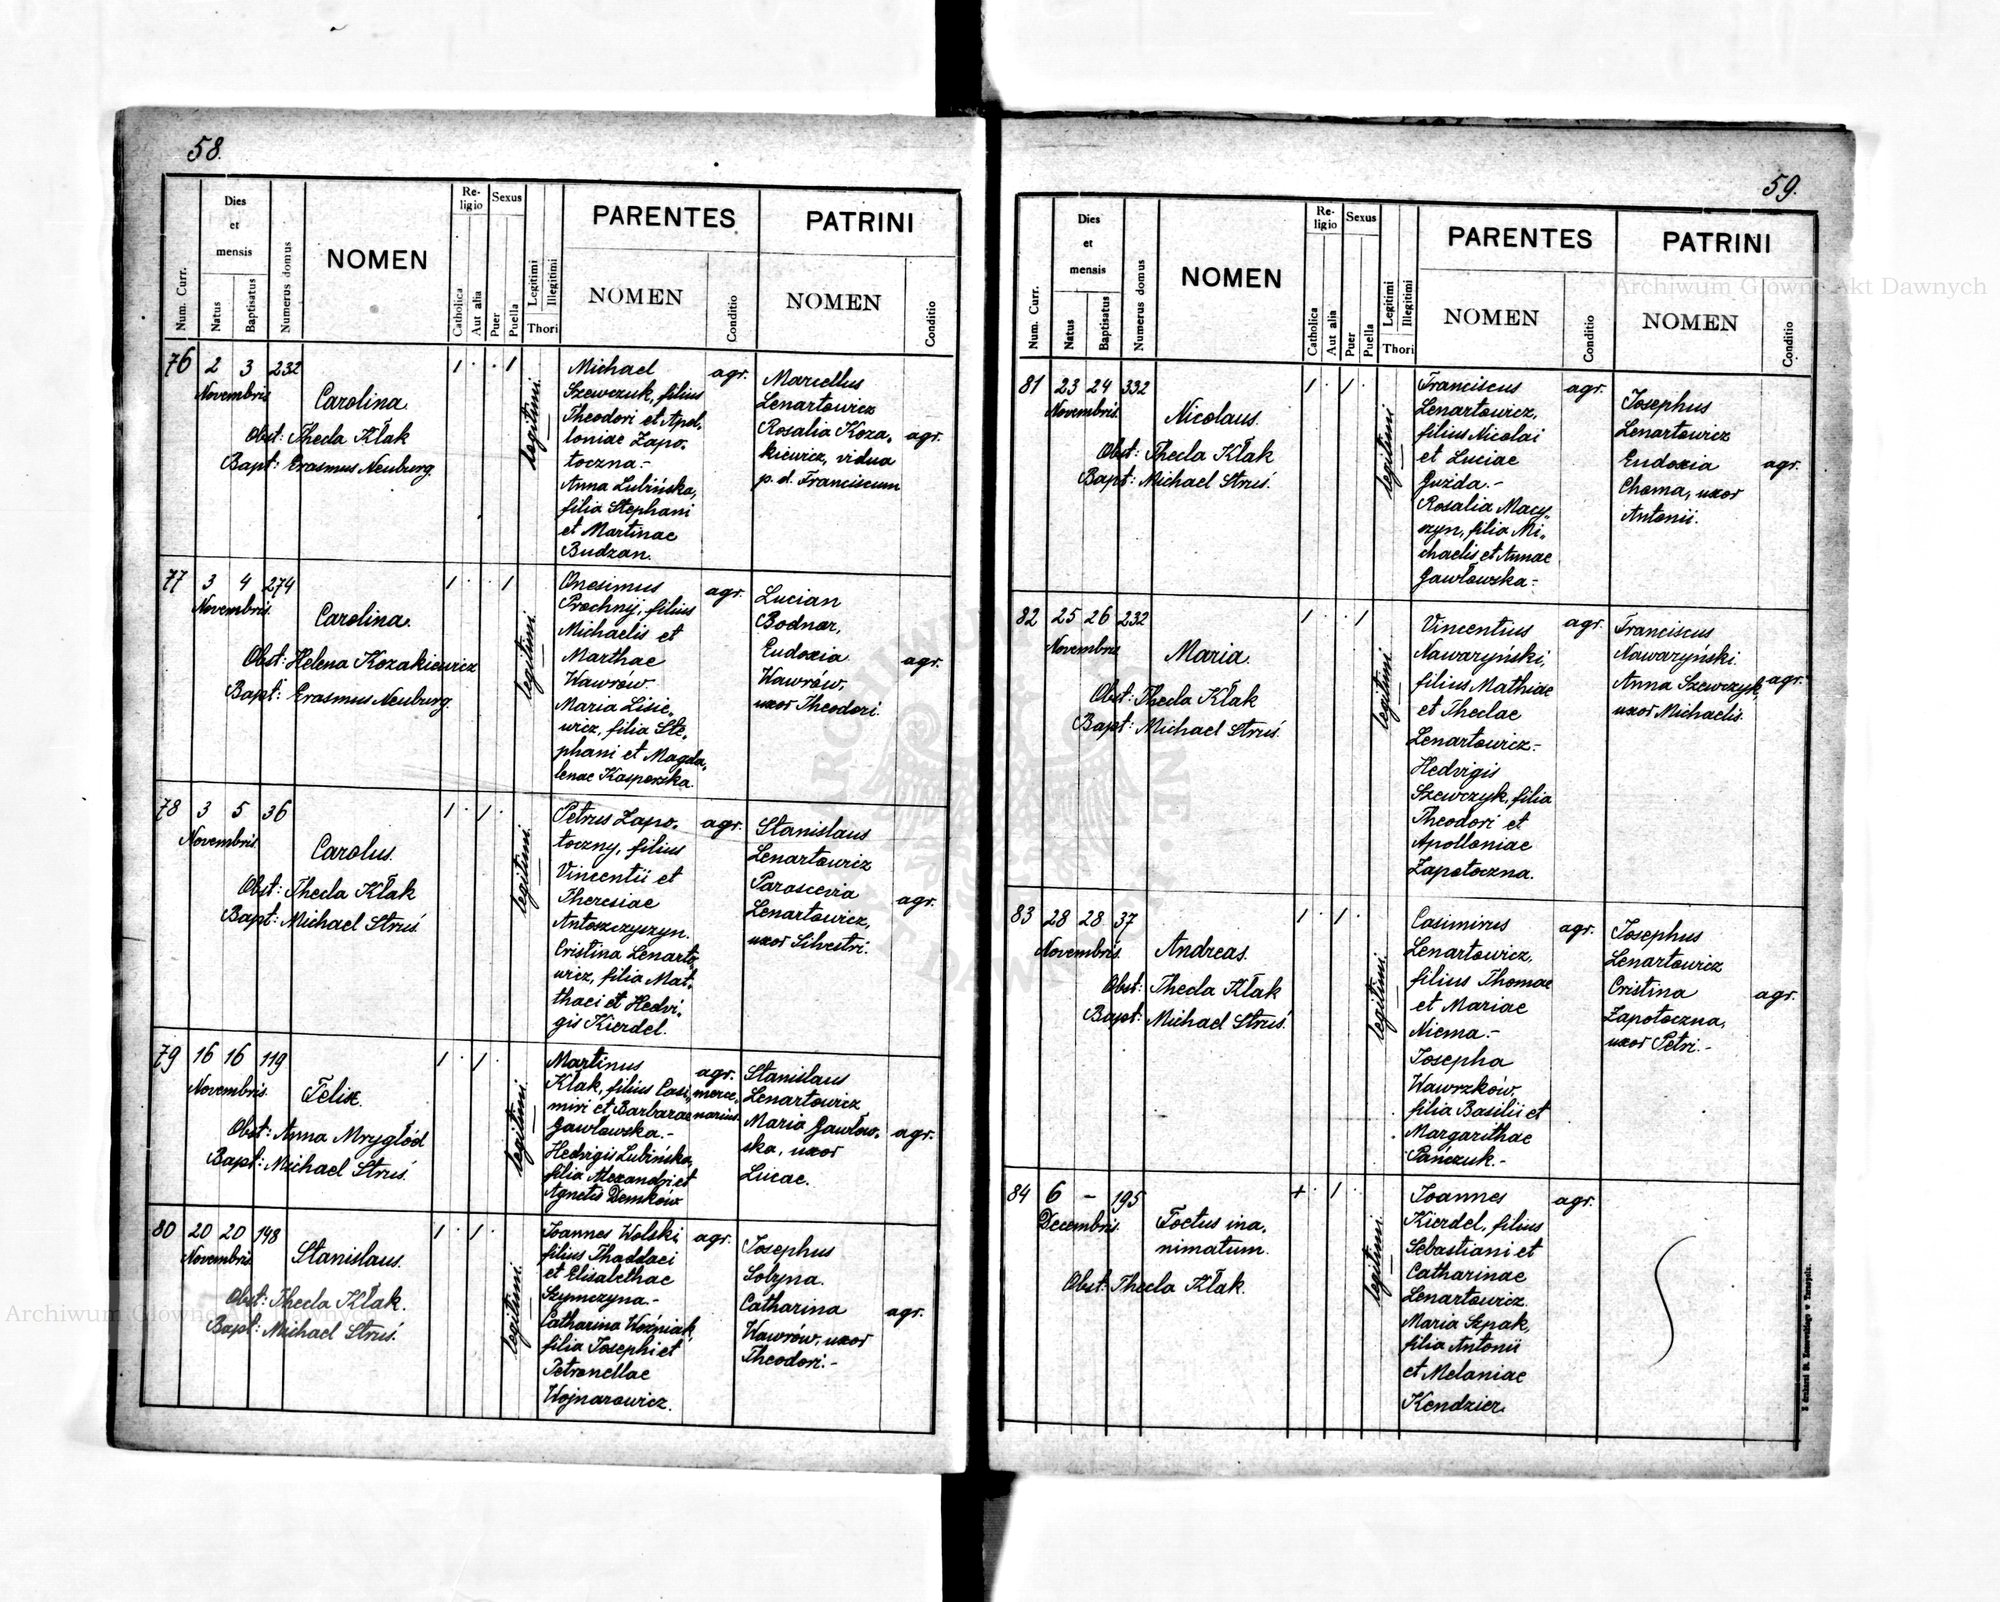 58.
Num. Curr.
Dies et mensis
Natus
Baptisatus
Numerus domus
NOMEN
Religio
Catholica
Aut alia
Sexus
Puer
Puella
Legitimi
Illegitimi
Thori
PARENTES
NOMEN
Conditio
PATRINI
NOMEN
Conditio
76 2 3 232
Novembris
Carolina.
Obst: Thecla Kłak
Bapt: Erasmus Neuburg.
1 . . 1
legitimi.
Michael
Szewczuk, filius
Theodori et Apol-
loniae Zapo-
toczna.-
Anna Lubińska,
filia Stephani
et Martinae
Budzan.
agr.
Marcellus
Lenartowicz
Rosalia Koza-
kiewicz, vidua
p. d. Franciscum
agr.
77 3 4 274
Novembris.
Carolina.
Obst: Helena Kozakiewicz
Bapt: Erasmus Neuburg.
1 . . 1
legitimi.
Onesimus
Prochny, filius
Michaelis et
Marthae
Wawrów.
Maria Lisie-
wicz, filia Ste-
phani et Magda-
lenae Kasperska.
agr.
Lucian
Bodnar,
Eudoxia
Wawrów,
uxor Theodori.
agr.
78 3 5 36
Novembris
Carolus.
Obst: Thecla Kłak
Bapt: Michael Struś
1 . 1 .
legitimi.
Petrus Zapo-
toczny, filius
Vincentii et
Theresiae
Antoszczyszyn.
Cristina Lenarto-
wicz, filia Mat-
thaei et Hedvi-
gis Kierdel.
agr.
Stanislaus
Lenartowicz
Parascevia
Lenartowicz,
uxor Silvestri.
agr.
79 16 16 119
Novembris.
Felix.
Obst: Anna Mrygłód
Bapt: Michael Struś.
1 . 1 .
legitimi.
Martinus
Kłak, filius Casi-
miri et Barbarae
Gawłowska.-
Hedvigis Lubińska,
filia Alexandri et
Agnetis Demków
agr.
merce-
narius.
Stanislaus
Lenartowicz
Maria Gawłow-
ska, uxor
Lucae.
agr.
80 20 20 148
Novembris
Stanislaus.
Obst: Thecla Kłak.
Bapt: Michael Struś.
1 . 1 .
legitimi.
Joannes Wolski
filius Thaddaei
et Elisabethae
Szymczyna.-
Catharina Woźniak,
filia Josephi et
Petronellae
Wojnarowicz.
agr.
Josephus
Solyna.
Catharina
Wawrów, uxor
Theodori.-
agr.
59.
Num. Curr.
Dies et mensis
Natus
Baptisatus
Numerus domus
NOMEN
Religio
Catholica
Aut alia
Sexus
Puer
Puella
Legitimi
Illegitimi
Thori
PARENTES
NOMEN
Conditio
PATRINI
NOMEN
Conditio
81 23 24 332
Novembris.
Nicolaus.
Obst: Thecla Kłak
Bapt: Michael Struś.
1 . 1 .
legitimi.
Franciscus
Lenartowicz,
filius Nicolai
et Luciae
Guzda.-
Rosalia Macy-
szyn, filia Mi-
chaelis et Annae
Gawłowska.-
agr.
Josephus
Lenartowicz
Eudoxia
Choma, uxor
Antonii.
agr.
82 25 26 232
Novembris
Maria.
Obst: Thecla Kłak
Bapt: Michael Struś.
1 . . 1
legitimi.
Vincentius
Nawaryński,
filius Mathiae
et Theclae
Lenartowicz.-
Hedvigis
Szewczyk, filia
Theodori et
Apolloniae
Zapotoczna.
agr.
Franciscus
Nawaryński.
Anna Szewczyk,
uxor Michaelis.
agr.
83 28 28 37
Novembris.
Andreas.
Obst: Thecla Kłak
Bapt: Michael Struś.
1 . 1 .
legitimi.
Casimirus
Lenartowicz,
filius Thomae
et Mariae
Niema.-
Josepha
Wawrzków,
filia Basilii et
Margarithae
Pańczuk.-
agr.
Josephus
Lenartowicz
Cristina
Zapotoczna,
uxor Petri.-
agr.
84 6 - 195
Decembris.
Foetus ina-
nimatum.
Obst: Thecla Kłak.
+ . 1 .
legitimi.
Joannes
Kierdel, filius
Sebastiani et
Catharinae
Lenartowicz.
Maria Szpak,
filia Antonii
et Melaniae
Kendzier.
agr.
Archiwum Główne Akt Dawnych
Archiwum Główne Akt Dawnych